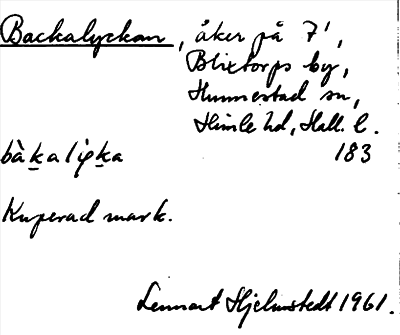 Backalyckan, åker på 7',
Blixtorps by,
Hunnestad sn,
Himle hd, Hall. l.
bàkalỳka 183
Kuperad mark.
Lennart Hjelmstedt 1961.